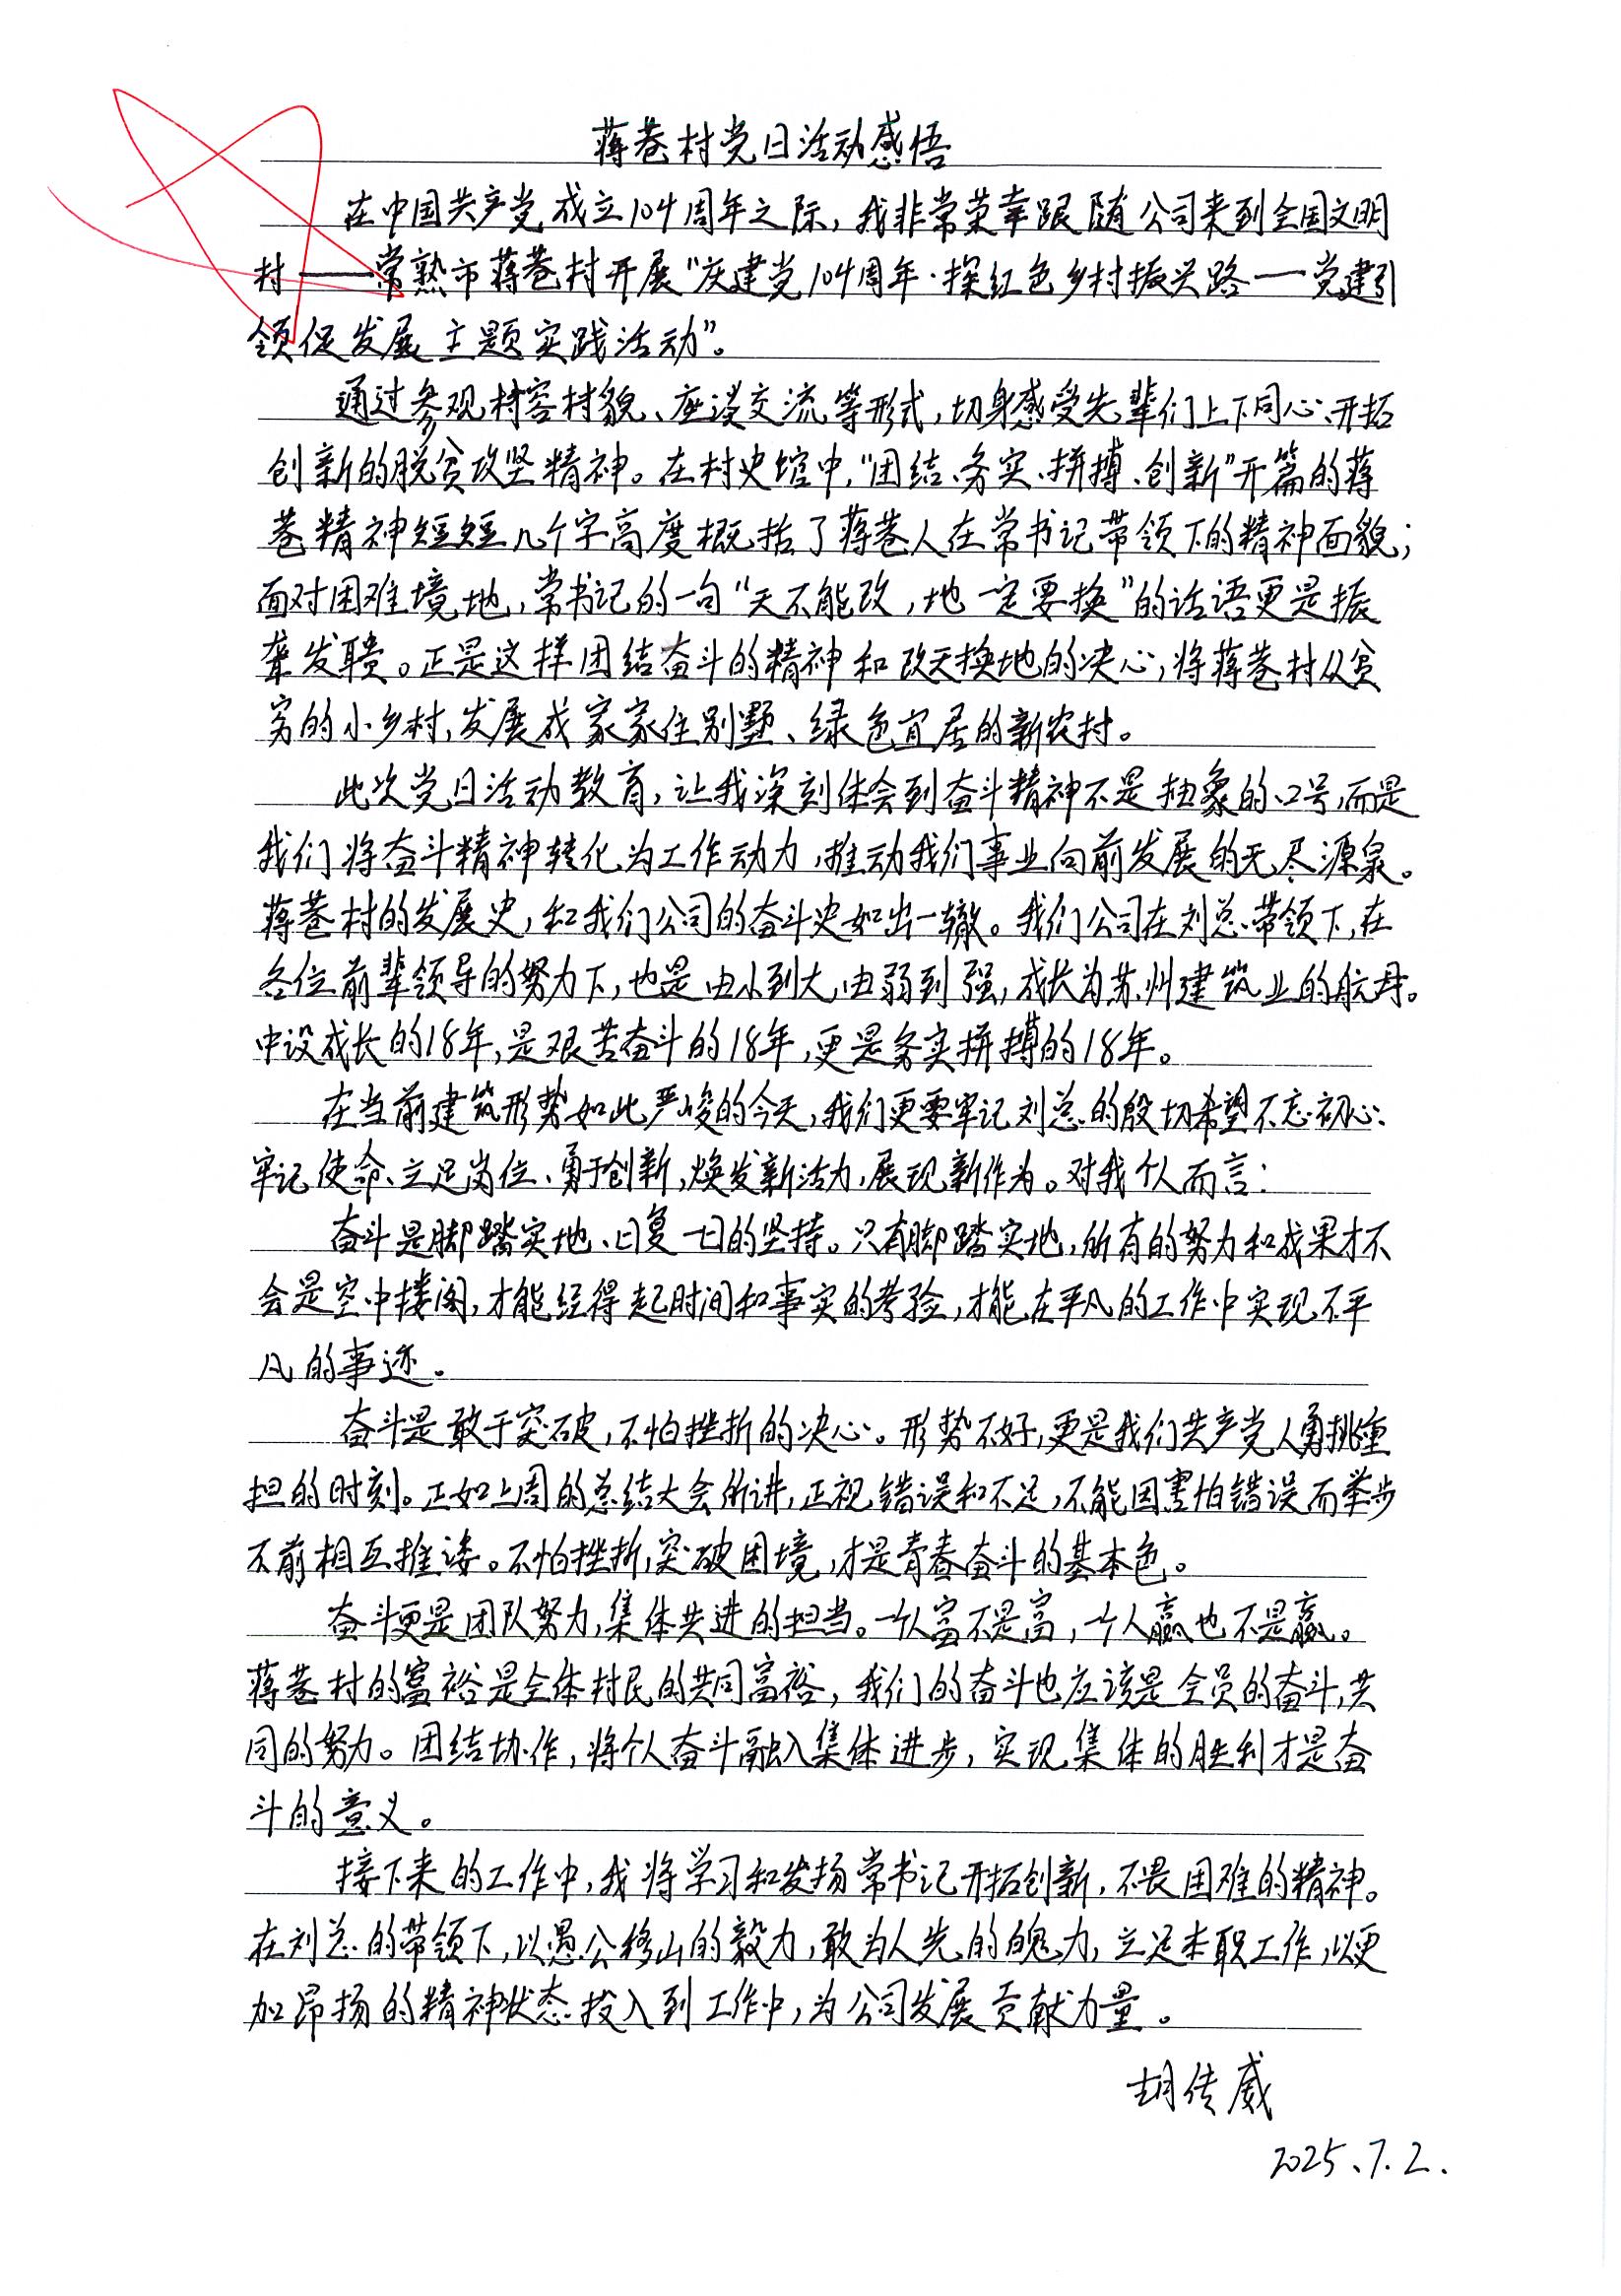 蒋巷村党日活动感悟
在中国共产党成立104周年之际，我非常荣幸跟随公司来到全国文明
村——常熟市蒋巷村开展“庆建党104周年·探红色乡村振兴路——党建引
领促发展主题实践活动”。
通过参观村容村貌、座谈交流等形式，切身感受先辈们上下同心、开拓
创新的脱贫攻坚精神。在村史馆中，“团结、务实、拼搏、创新”开篇的蒋
巷精神短短几个字高度概括了蒋巷人在常书记带领下的精神面貌；
面对困难境地，常书记的一句“天不能改，地一定要换”的话语更是振
聋发聩。正是这样团结奋斗的精神和改天换地的决心，将蒋巷村从贫
穷的小乡村，发展成家家住别墅、绿色宜居的新农村。
此次党日活动教育，让我深刻体会到奋斗精神不是抽象的口号，而是
我们将奋斗精神转化为工作动力，推动我们事业向前发展的无尽源泉。
蒋巷村的发展史，和我们公司的奋斗史如出一辙。我们公司在刘总带领下，在
各位前辈领导的努力下，也是由小到大，由弱到强，成长为苏州建筑业的航母。
中设成长的18年，是艰苦奋斗的18年，更是务实拼搏的18年。
在当前建筑形势如此严峻的今天，我们更要牢记刘总的殷切希望不忘初心、
牢记使命、立足岗位、勇于创新，焕发新活力，展现新作为。对我个人而言：
奋斗是脚踏实地、日复一日的坚持。只有脚踏实地，所有的努力和成果才不
会是空中楼阁，才能经得起时间和事实的考验，才能在平凡的工作中实现不平
凡的事迹。
奋斗是敢于突破，不怕挫折的决心。形势不好，更是我们共产党人勇挑重
担的时刻。正如上周的总结大会所讲，正视错误和不足，不能因害怕错误而举步
不前相互推诿。不怕挫折，突破困境，才是青春奋斗的基本色。
奋斗更是团队努力，集体共进的担当。一个人富不是富，一个人赢也不是赢。
蒋巷村的富裕是全体村民的共同富裕，我们的奋斗也应该是全员的奋斗，共
同的努力。团结协作，将个人奋斗融入集体进步，实现集体的胜利才是奋
斗的意义。
接下来的工作中，我将学习和发扬常书记开拓创新，不畏困难的精神。
在刘总的带领下，以愚公移山的毅力，敢为人先的魄力，立足本职工作，以更
加昂扬的精神状态投入到工作中，为公司发展贡献力量。
胡传威
2025.7.2.